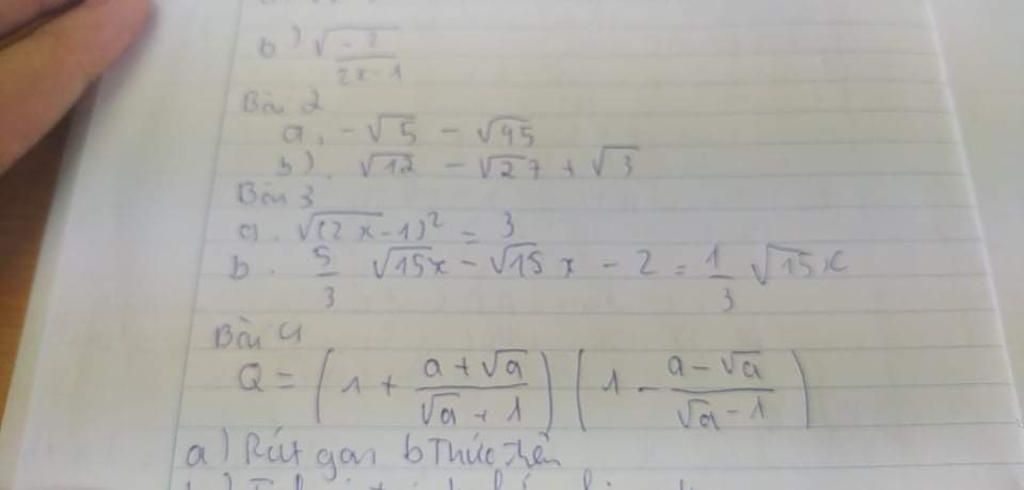 b) √(-7/(2x-1))
Bài 2
a, -√5 - √45
b). √12 - √27 + √3
Bài 3
a. √(2x-1)² = 3
b. 5/3 √15x - √15x - 2 = 1/3 √15x
Bài 4
Q = (1 + (a+√a)/(√a+1)) (1 - (a-√a)/(√a-1))
a) Rút gọn b thức trên